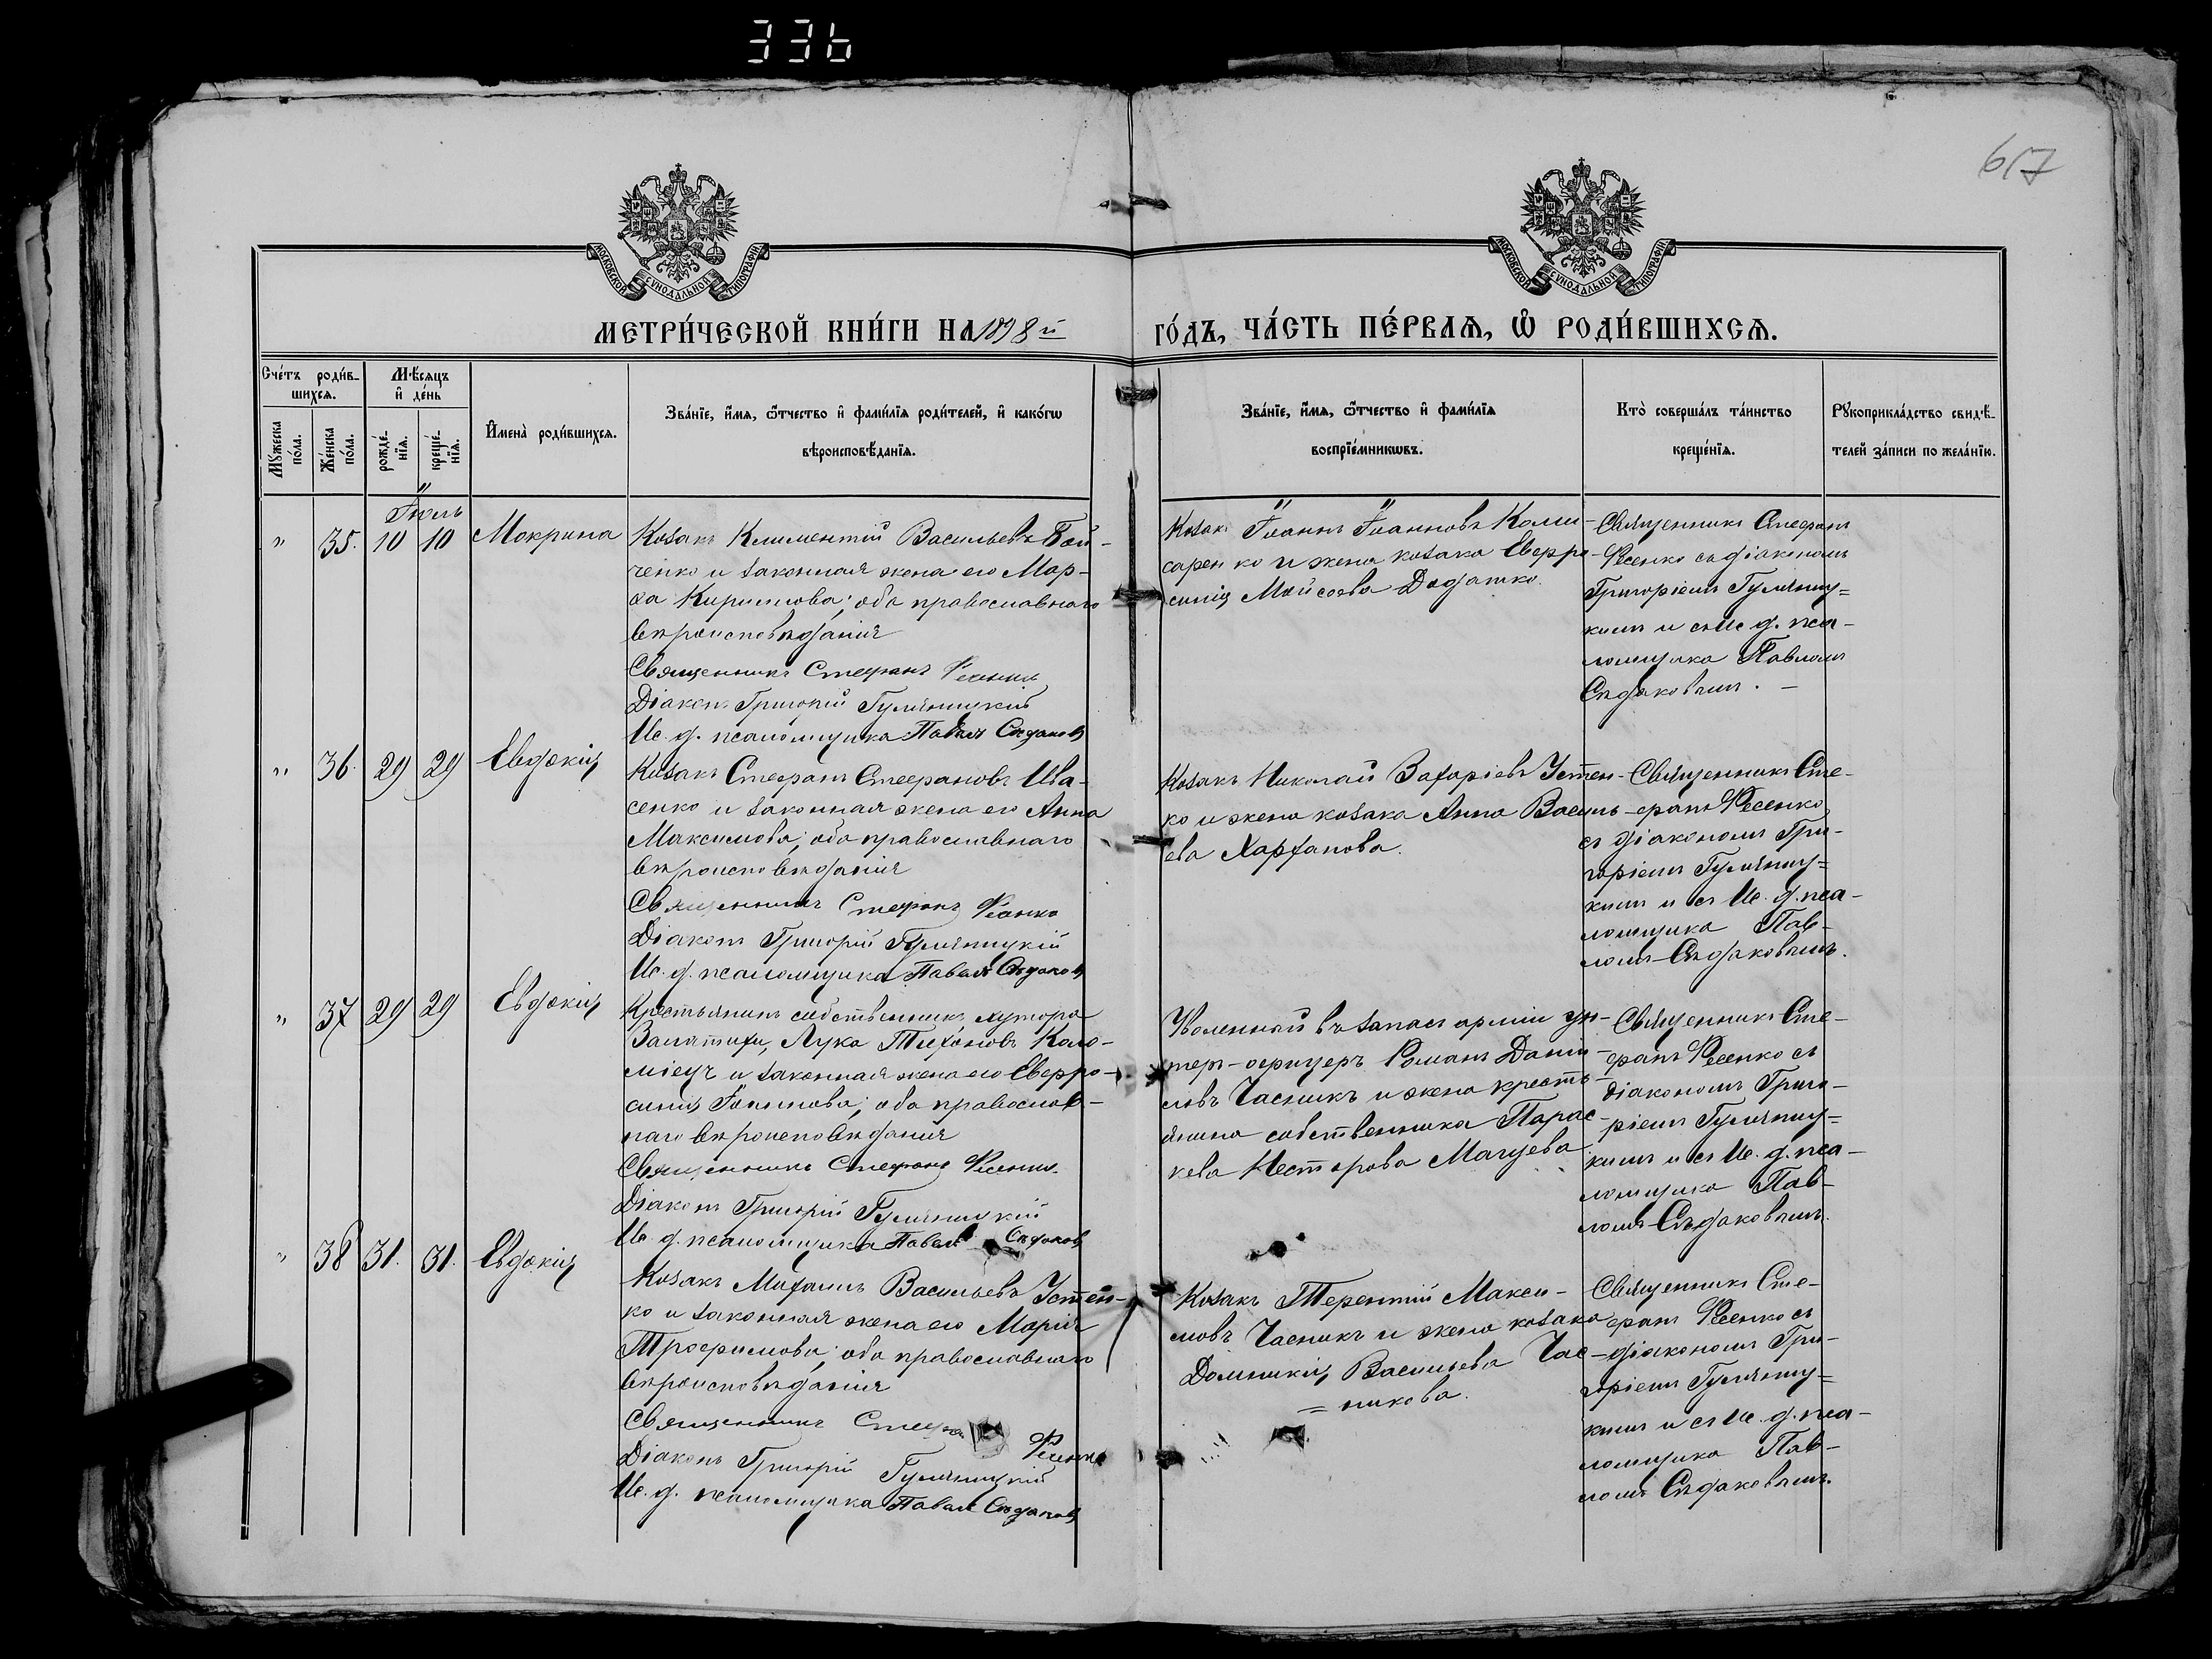 336
617
МОСКОВСКОЙ СѴНОДАЛЬНОЙ ТИПОГРАФІИ
МОСКОВСКОЙ СѴНОДАЛЬНОЙ ТИПОГРАФІИ
МЕТРИ́ЧЕСКОЙ КНИ́ГИ НА 1898й
ГО́ДЪ, ЧА́СТЬ ПЕ́РВАѦ, Ѽ РОДИ́ВШИХСѦ.
Сче́тъ роди́в-
шихсѧ.
Мѣ́сѧцъ
и҆ де́нь
Му́жеска
по́ла.
Же́нска
по́ла.
рожде́-
нїѧ.
креще́-
нїѧ.
И҆мена̀ роди́вшихсѧ.
Зва́нїе, и҆́мѧ, ѻ҆́тчество и҆ фами́лїѧ роди́телей, и҆ како́гѡ
вѣроисповѣ́данїѧ.
Зва́нїе, и҆́мѧ, ѻ҆́тчество и҆ фами́лїѧ
воспрїе́мникѡвъ.
Кто̀ соверша́лъ та́инство
креще́нїѧ.
Рꙋкоприкла́дство свидѣ́-
телей за́писи по жела́нїю.
Іюль
" 35. 10 10 Макрина
Козакъ Климентій Васильевъ Бой-
ченко и законная жена его Мар-
ѳа Кириллова; оба православнаго
вѣроисповѣданія
Священникъ Стефанъ Фесенко
Діаконъ Григорій Гуляницкій
Ис. д. псаломщика Павелъ Сѣдаковъ
Козакъ Іоаннъ Іоанновъ Коми-
саренко и жена козака Евфро-
синія Мойсеева Дадашко.
Священникъ Стефанъ
Фесенко съ діакономъ
Григоріемъ Гуляниц=
кимъ и съ Ис. д. пса-
ломщика Павломъ
Сѣдаковымъ. —
" 36. 29 29 Евдокія
Козакъ Стефанъ Стефановъ Ива-
сенко и законная жена его Анна
Максимова; оба православнаго
вѣроисповѣданія
Священникъ Стефанъ Фесенко
Діаконъ Григорій Гуляницкій
Ис. д. псаломщика Павелъ Сѣдаковъ
Козакъ Николай Захаріевъ Устен-
ко и жена козака Анна Василь-
ева Харханова.
Священникъ Сте-
фанъ Фесенко
съ діакономъ Гри-
горіемъ Гуляниц=
кимъ и съ Ис. д. пса-
ломщика Пав-
ломъ Сѣдаковымъ.
" 37 29 29 Евдокія
Крестьянинъ собственникъ хутора
Лука Коло-
міецъ и законная жена его Евфро-
синія Іоаннова; оба православ-
наго вѣроисповѣданія
Священникъ Стефанъ Фесенко
Діаконъ Григорій Гуляницкій
Ис. д. псаломщика Павелъ Сѣдаковъ
Уволенный въ запасъ арміи ун-
теръ-офицеръ Романъ Даніи-
ловъ Часникъ и жена кресть-
янина собственника Парас-
кева Нестерова Мацуева
Священникъ Сте-
фанъ Фесенко съ
діакономъ Григо-
ріемъ Гуляниц=
кимъ и съ Ис. д. пса-
ломщика Пав-
ломъ Сѣдаковымъ.
" 38 31. 31. Евдокія
Козакъ Михаилъ Васильевъ Устен-
ко и законная жена его Марія
Трофимова; оба православнаго
вѣроисповѣданія
Священникъ Стефанъ Фесенко
Діаконъ Григорій Гуляницкій
Ис. д. псаломщика Павелъ Сѣдаковъ
Козакъ Терентій Макси-
мовъ Часникъ и жена козака
Домникія Васильева Час-
=никова.
Священникъ Сте-
фанъ Фесенко съ
діакономъ Гри-
горіемъ Гуляниц=
кимъ и съ Ис. д. пса-
ломщика Пав-
ломъ Сѣдаковымъ.